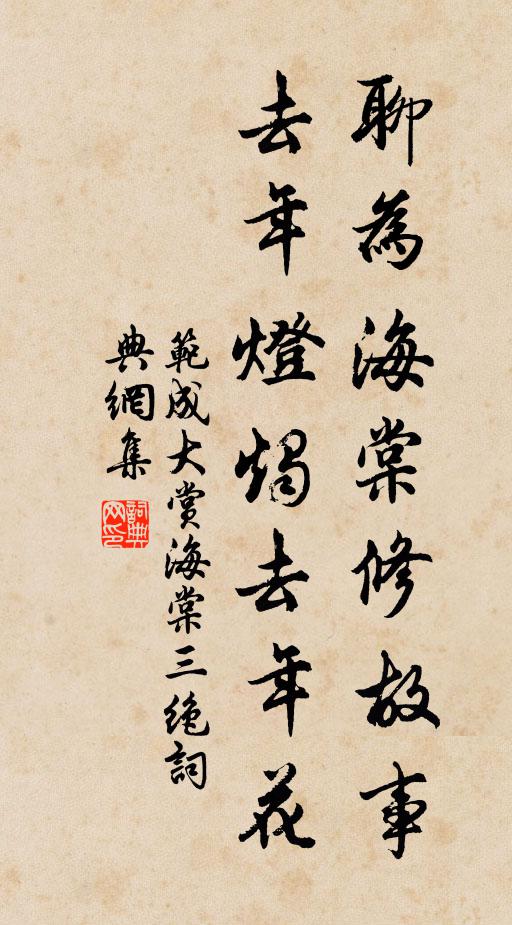 聊為海棠修故事
去年燈燭去年花
範成大賞海棠三絶詞
典網集
詞典網印